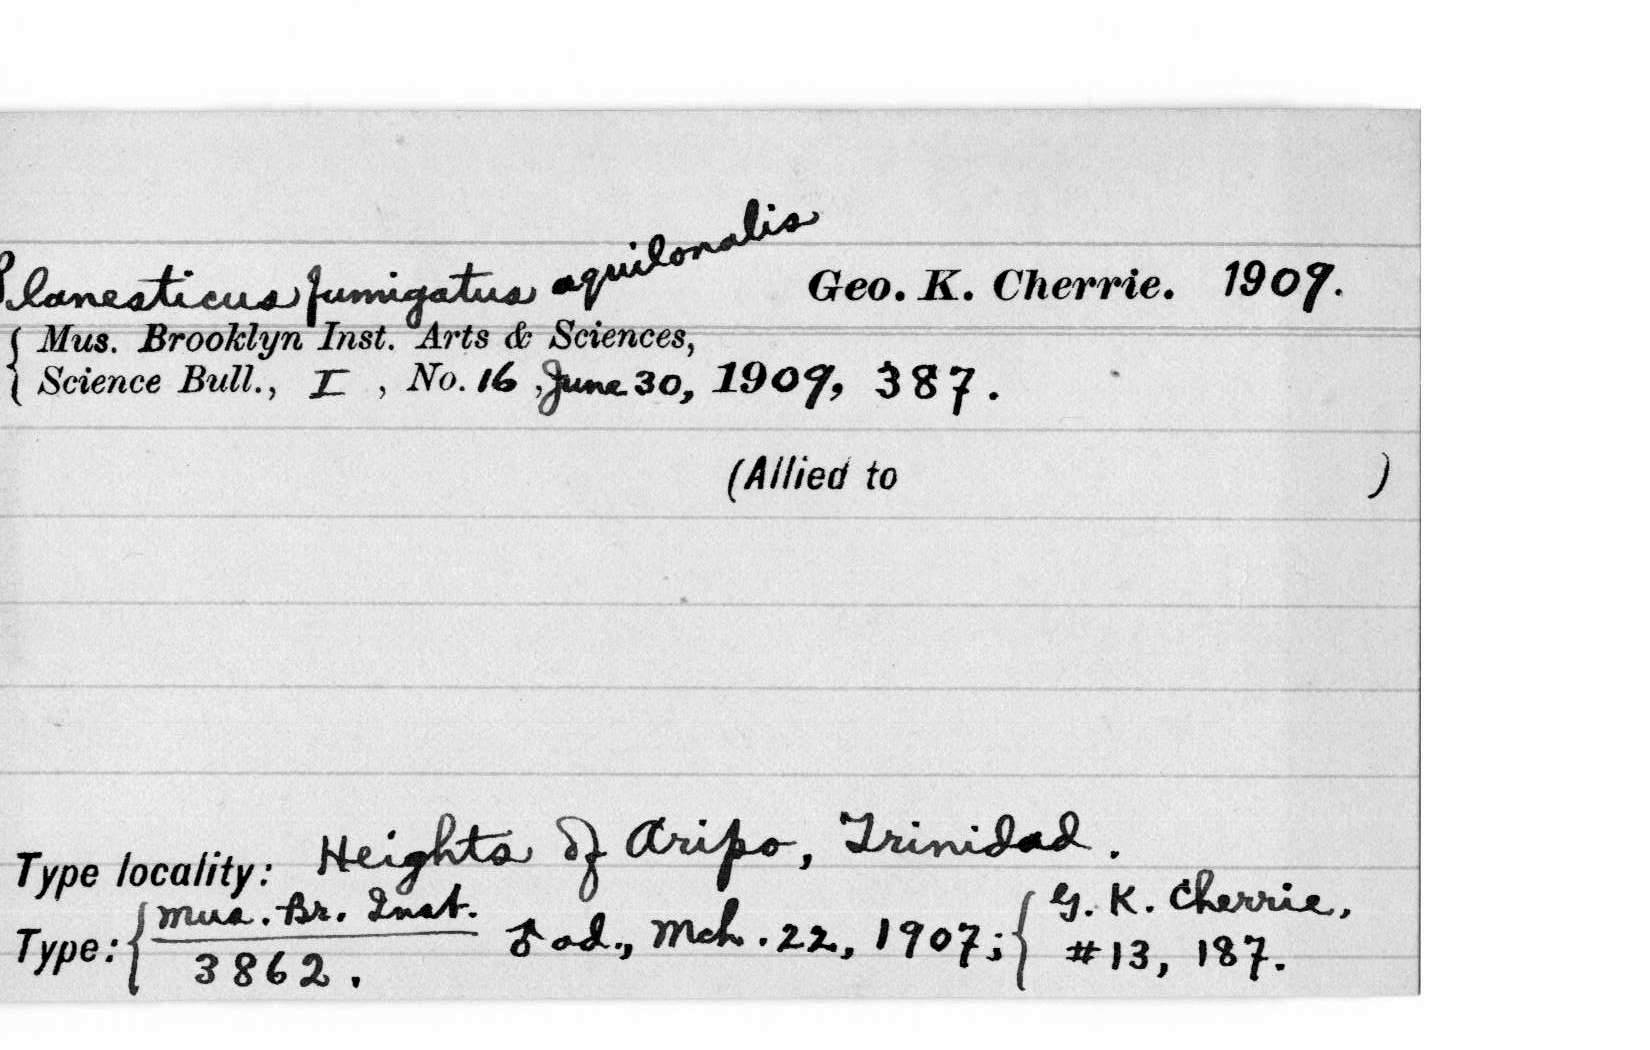 Planesticus fumigatus aquilonalis Geo. K. Cherrie. 1909.
{ Mus. Brooklyn Inst. Arts & Sciences,
Science Bull., I, No. 16, June 30, 1909, 387.
(Allied to )
Type locality: Heights of Aripo, Trinidad.
Type: { Mus. Br. Inst. 3862. ♂ ad., Mch. 22, 1907; { G. K. Cherrie, #13, 187.